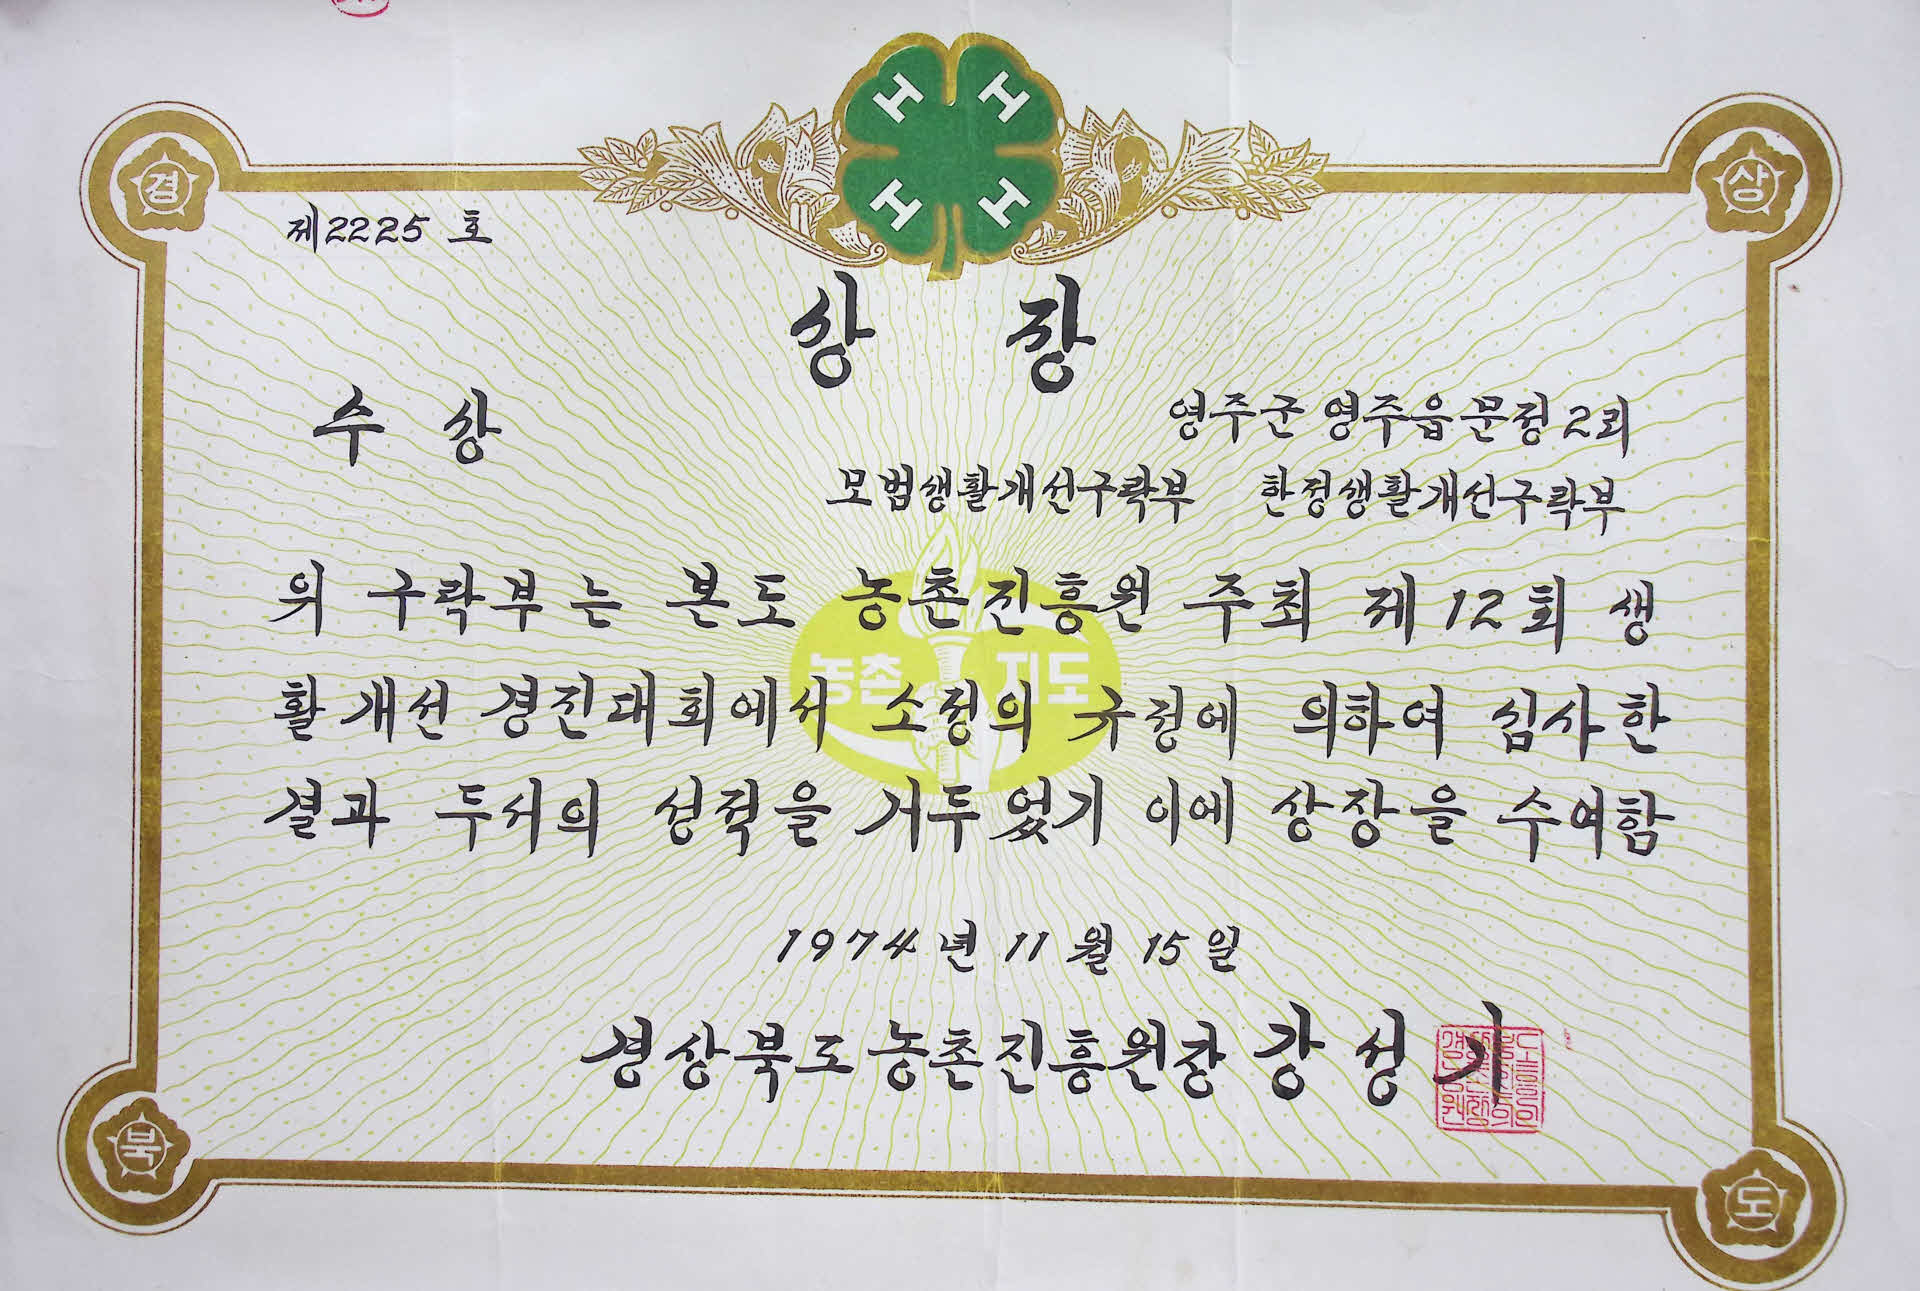 H H
H H
경 상
제2225 호
상 장
수 상
영주군 영주읍 문정2리
모범생활개선구락부 한정생활개선구락부
위 구락부는 본도 농촌진흥원 주최 제12회 생
농촌 지도
활개선 경진대회에서 소정의 규정에 의하여 심사한
결과 두서의 성적을 거두었기 이에 상장을 수여함
1974년 11월 15일
경상북도농촌진흥원장 강성기
북 도